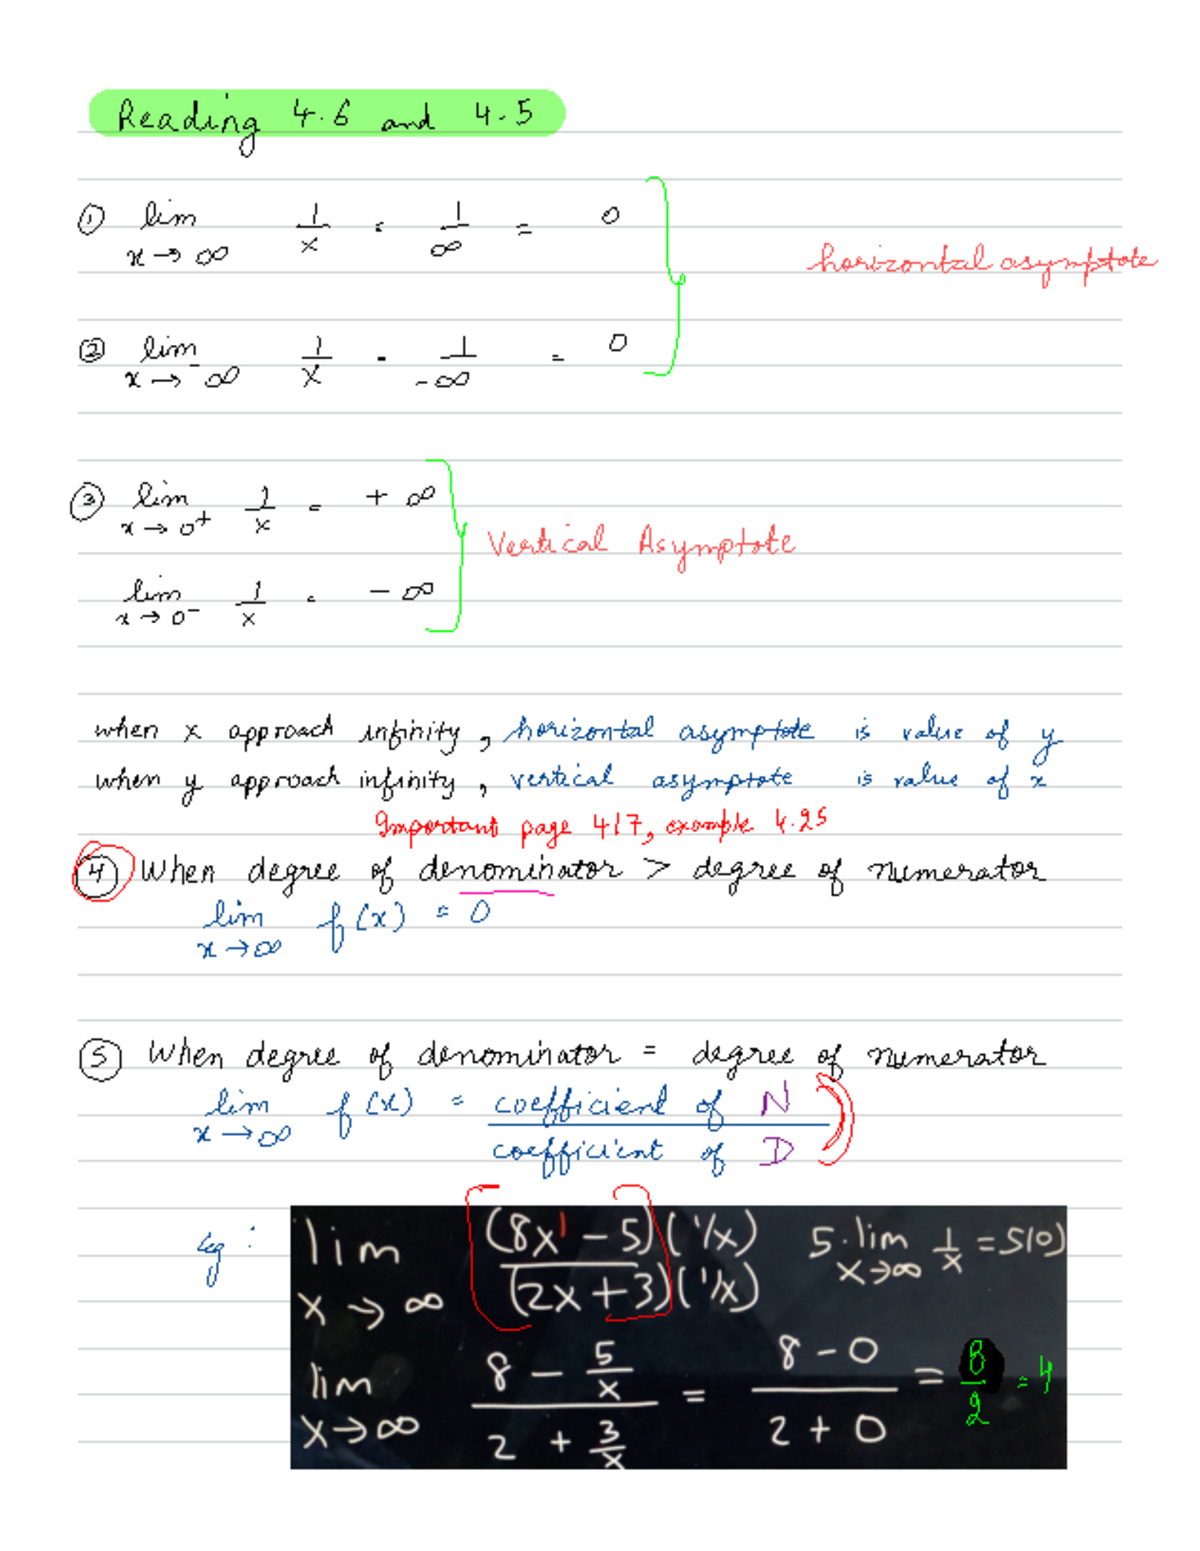 Reading 4.6 and 4.5
① lim x→∞ 1/x = 1/∞ = 0
horizontal asymptote
② lim x→-∞ 1/x = 1/-∞ = 0
③ lim x→0⁺ 1/x = +∞
Vertical Asymptote
lim x→0⁻ 1/x = -∞
when x approach infinity, horizontal asymptote is value of y
when y approach infinity, vertical asymptote is value of x
Important page 417, example 4.25
④ When degree of denominator > degree of numerator
lim x→∞ f(x) = 0
⑤ When degree of denominator = degree of numerator
lim x→∞ f(x) = coefficient of N / coefficient of D
eg: lim x→∞ (8x¹ - 5)(1/x) / (2x + 3)(1/x) 5·lim x→∞ 1/x = 5(0)
lim x→∞ 8 - 5/x / 2 + 3/x = 8 - 0 / 2 + 0 = 8/2 = 4